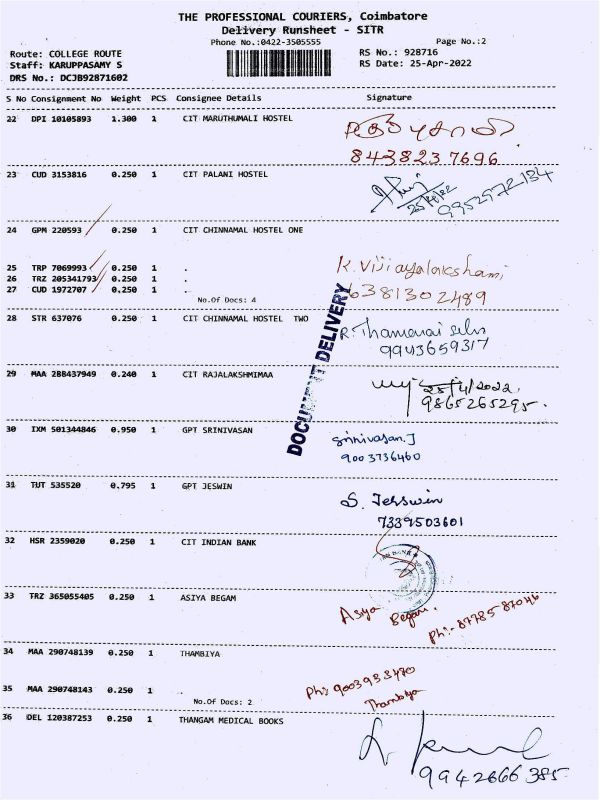 THE PROFESSIONAL COURIERS, Coimbatore
Delivery Runsheet - SITR
Phone No.:0422-3505555 Page No.:2
Route: COLLEGE ROUTE RS No.: 928716
Staff: KARUPPASAMY S RS Date: 25-Apr-2022
DRS No.: DCJB92871602
S No Consignment No Weight PCS Consignee Details Signature
22 DPI 10105893 1.300 1 CIT MARUTHUMALI HOSTEL
8438237696
23 CUD 3153816 0.250 1 CIT PALANI HOSTEL
25/4/22 9952972134
24 GPM 220593 0.250 1 CIT CHINNAMAL HOSTEL ONE
25 TRP 7069993 0.250 1 .
K. Vijiayalakshami
26 TRZ 205341793 0.250 1 .
27 CUD 1972707 0.250 1 .
6381302489
No.Of Docs: 4
DOCUMENT DELIVERY
28 STR 637076 0.250 1 CIT CHINNAMAL HOSTEL TWO
R. Thamarai selvi
9943659317
29 MAA 288437949 0.240 1 CIT RAJALAKSHMIMAA
25/4/2022.
9865265295.
30 IXM 501344846 0.950 1 GPT SRINIVASAN
Srinivasan.J
9003736460
31 TUT 535520 0.795 1 GPT JESWIN
S. Jesswin
7339503601
32 HSR 2359020 0.250 1 CIT INDIAN BANK
33 TRZ 365055405 0.250 1 ASIYA BEGAM
Asiya Begam.
Ph:- 8778587046
34 MAA 290748139 0.250 1 THAMBIYA
Ph: 9003933470
35 MAA 290748143 0.250 1 .
Thambiya
No.Of Docs: 2
36 DEL 120387253 0.250 1 THANGAM MEDICAL BOOKS
9942666385